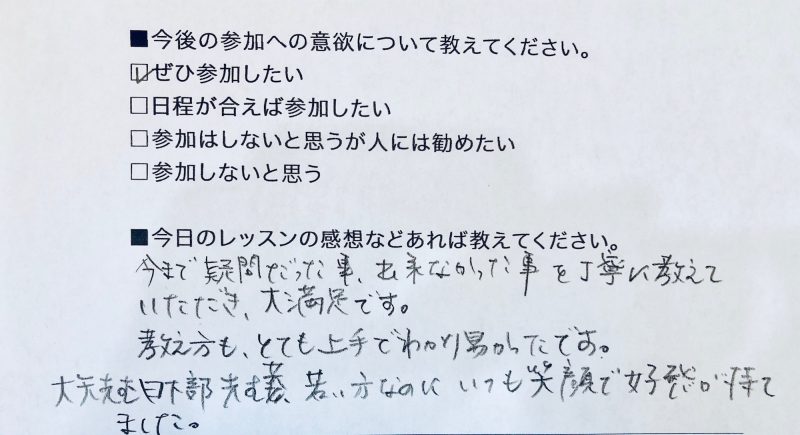 ■今後の参加への意欲について教えてください。
☑ぜひ参加したい
□日程が合えば参加したい
□参加はしないと思うが人には勧めたい
□参加しないと思う
■今日のレッスンの感想などあれば教えてください。
今まで疑問だった事、出来なかった事を丁寧に教えて
いただき、大満足です。
教え方も、とても上手でわかり易かったです。
大矢先生日下部先生 若い方なのに いつも笑顔で好感が持て
ました。